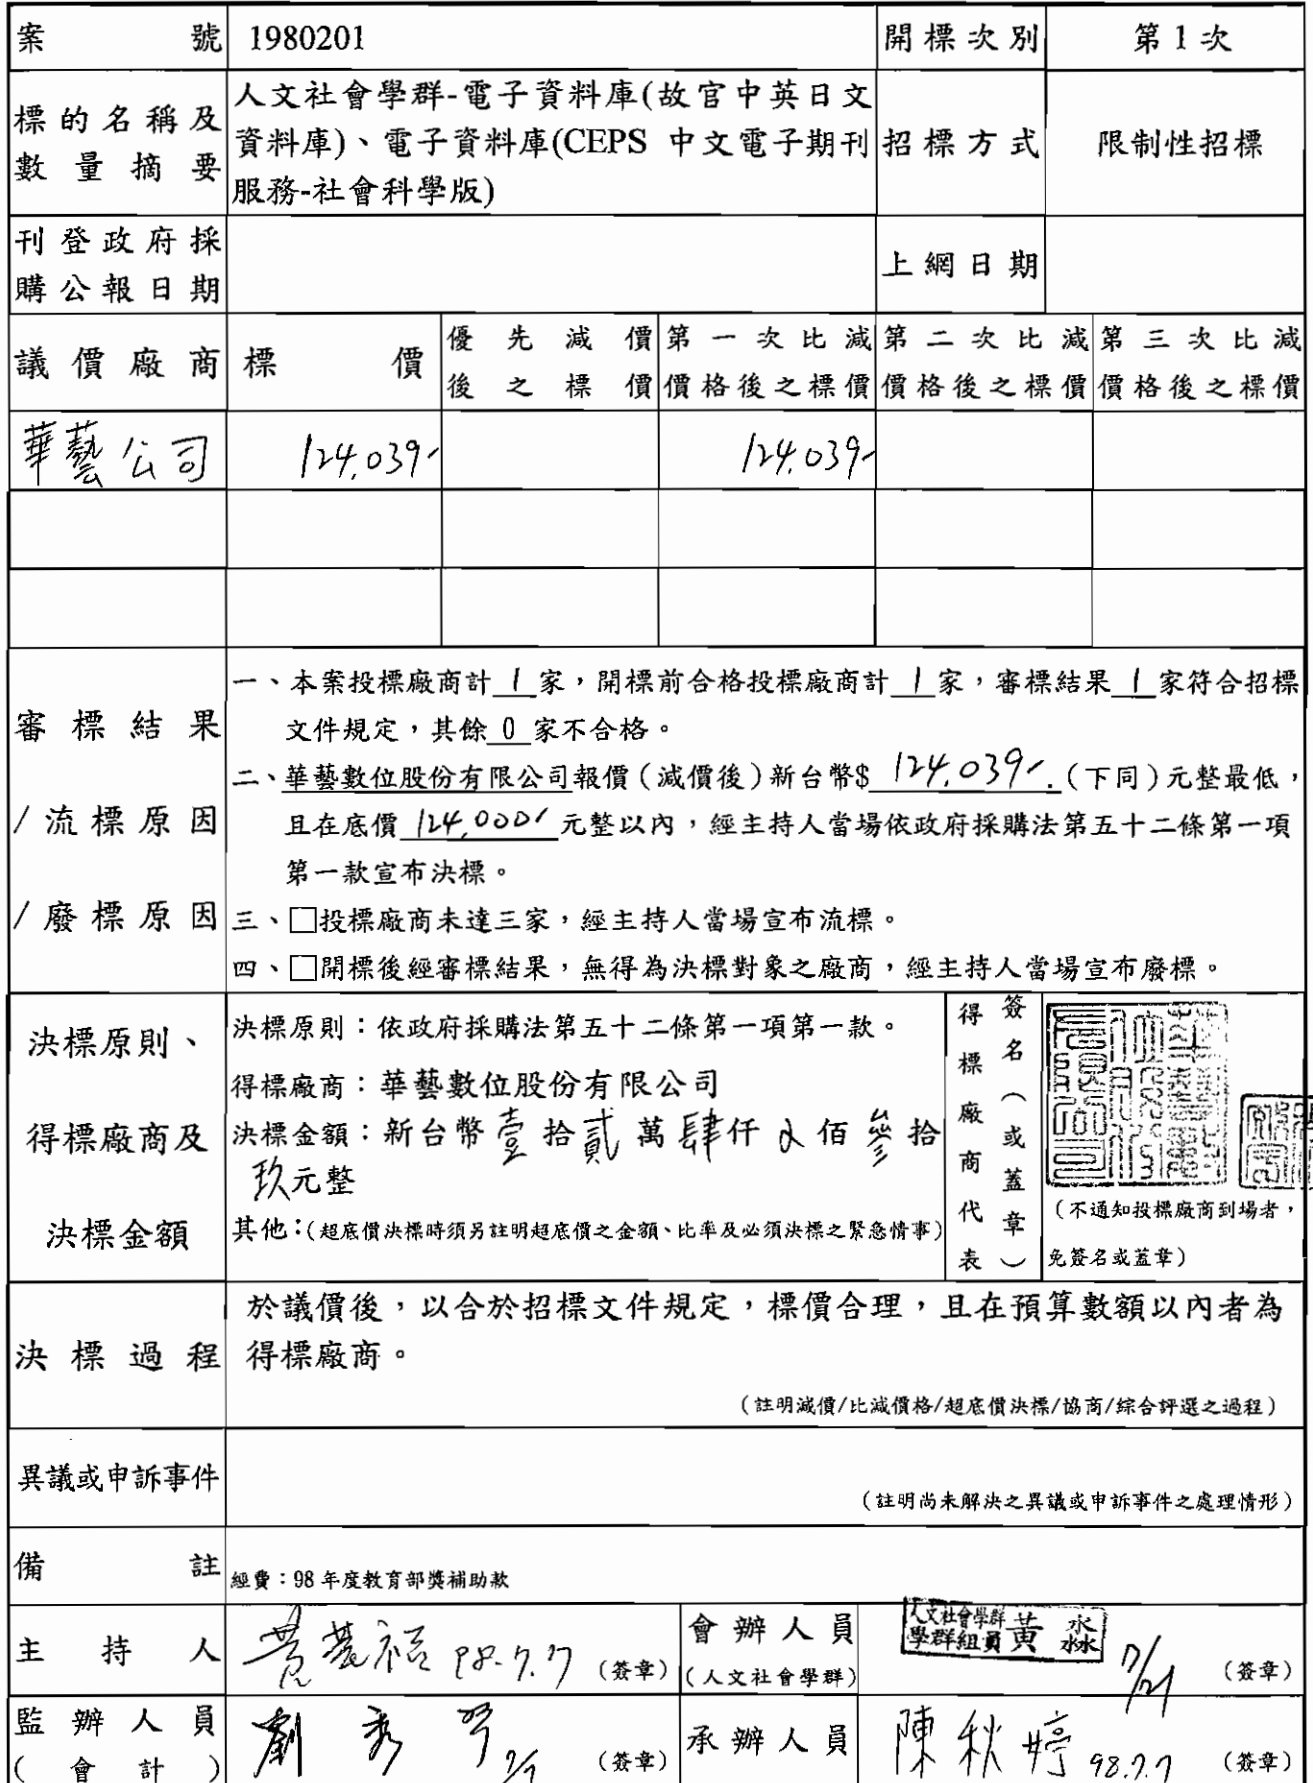 案號 1980201 開標次別 第1次
標的名稱及
數量摘要
人文社會學群-電子資料庫(故宮中英日文
資料庫)、電子資料庫(CEPS 中文電子期刊
服務-社會科學版)
招標方式 限制性招標
刊登政府採
購公報日期
上網日期
議價廠商 標價
優先減價
後之標價
第一次比減
價格後之標價
第二次比減
價格後之標價
第三次比減
價格後之標價
華藝公司 124,039- 124,039-
審標結果
/流標原因
/廢標原因
一、本案投標廠商計 1 家,開標前合格投標廠商計 1 家,審標結果 1 家符合招標
文件規定,其餘 0 家不合格。
二、華藝數位股份有限公司報價(減價後)新台幣$ 124,039-.(下同)元整最低,
且在底價 124,000- 元整以內,經主持人當場依政府採購法第五十二條第一項
第一款宣布決標。
三、□投標廠商未達三家,經主持人當場宣布流標。
四、□開標後經審標結果,無得為決標對象之廠商,經主持人當場宣布廢標。
決標原則、
得標廠商及
決標金額
決標原則:依政府採購法第五十二條第一項第一款。
得標廠商:華藝數位股份有限公司
決標金額:新台幣壹拾貳萬肆仟0佰參拾
玖元整
其他:(超底價決標時須另註明超底價之金額、比率及必須決標之緊急情事)
得標廠商代表
簽名(或蓋章)
(不通知投標廠商到場者,
免簽名或蓋章)
決標過程
於議價後,以合於招標文件規定,標價合理,且在預算數額以內者為
得標廠商。
(註明減價/比減價格/超底價決標/協商/綜合評選之過程)
異議或申訴事件
(註明尚未解決之異議或申訴事件之處理情形)
備註
經費:98年度教育部獎補助款
主持人 98.7.7 (簽章)
會辦人員
(人文社會學群)
人文社會學群
學群組員 黃淼淼
7/21 (簽章)
監辦人員
(會計)
劉秀琴 (簽章)
承辦人員 陳秋婷 98.7.7 (簽章)